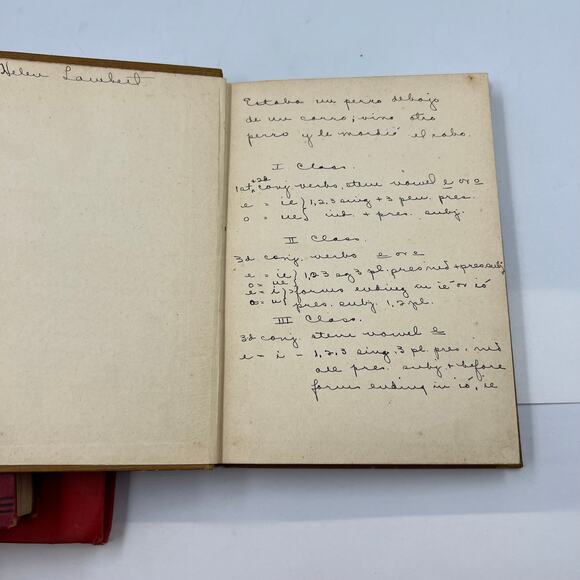 Helen Lambert
Estaba un perro debajo
de un carro; vino otro
perro y le mordió el cabo.
I Class.
1st + 2d conj verbs, stem vowel e or o
e = ie } 1,2,3 sing + 3 pers. pres.
o = ue } ind. + pres. subj.
II Class.
3d conj. verbs e or o
e = ie } 1,2,3 sg 3 pl. pres ind + pres. subj
o = ue
e = i } forms ending in ie or ió
o = u } pres. subj. 1, 2 pl.
III Class.
3d conj stem vowel e
e - i - 1,2,3 sing. 3 pl. pres. ind
all pres. subj. + before
forms ending in ió, ie